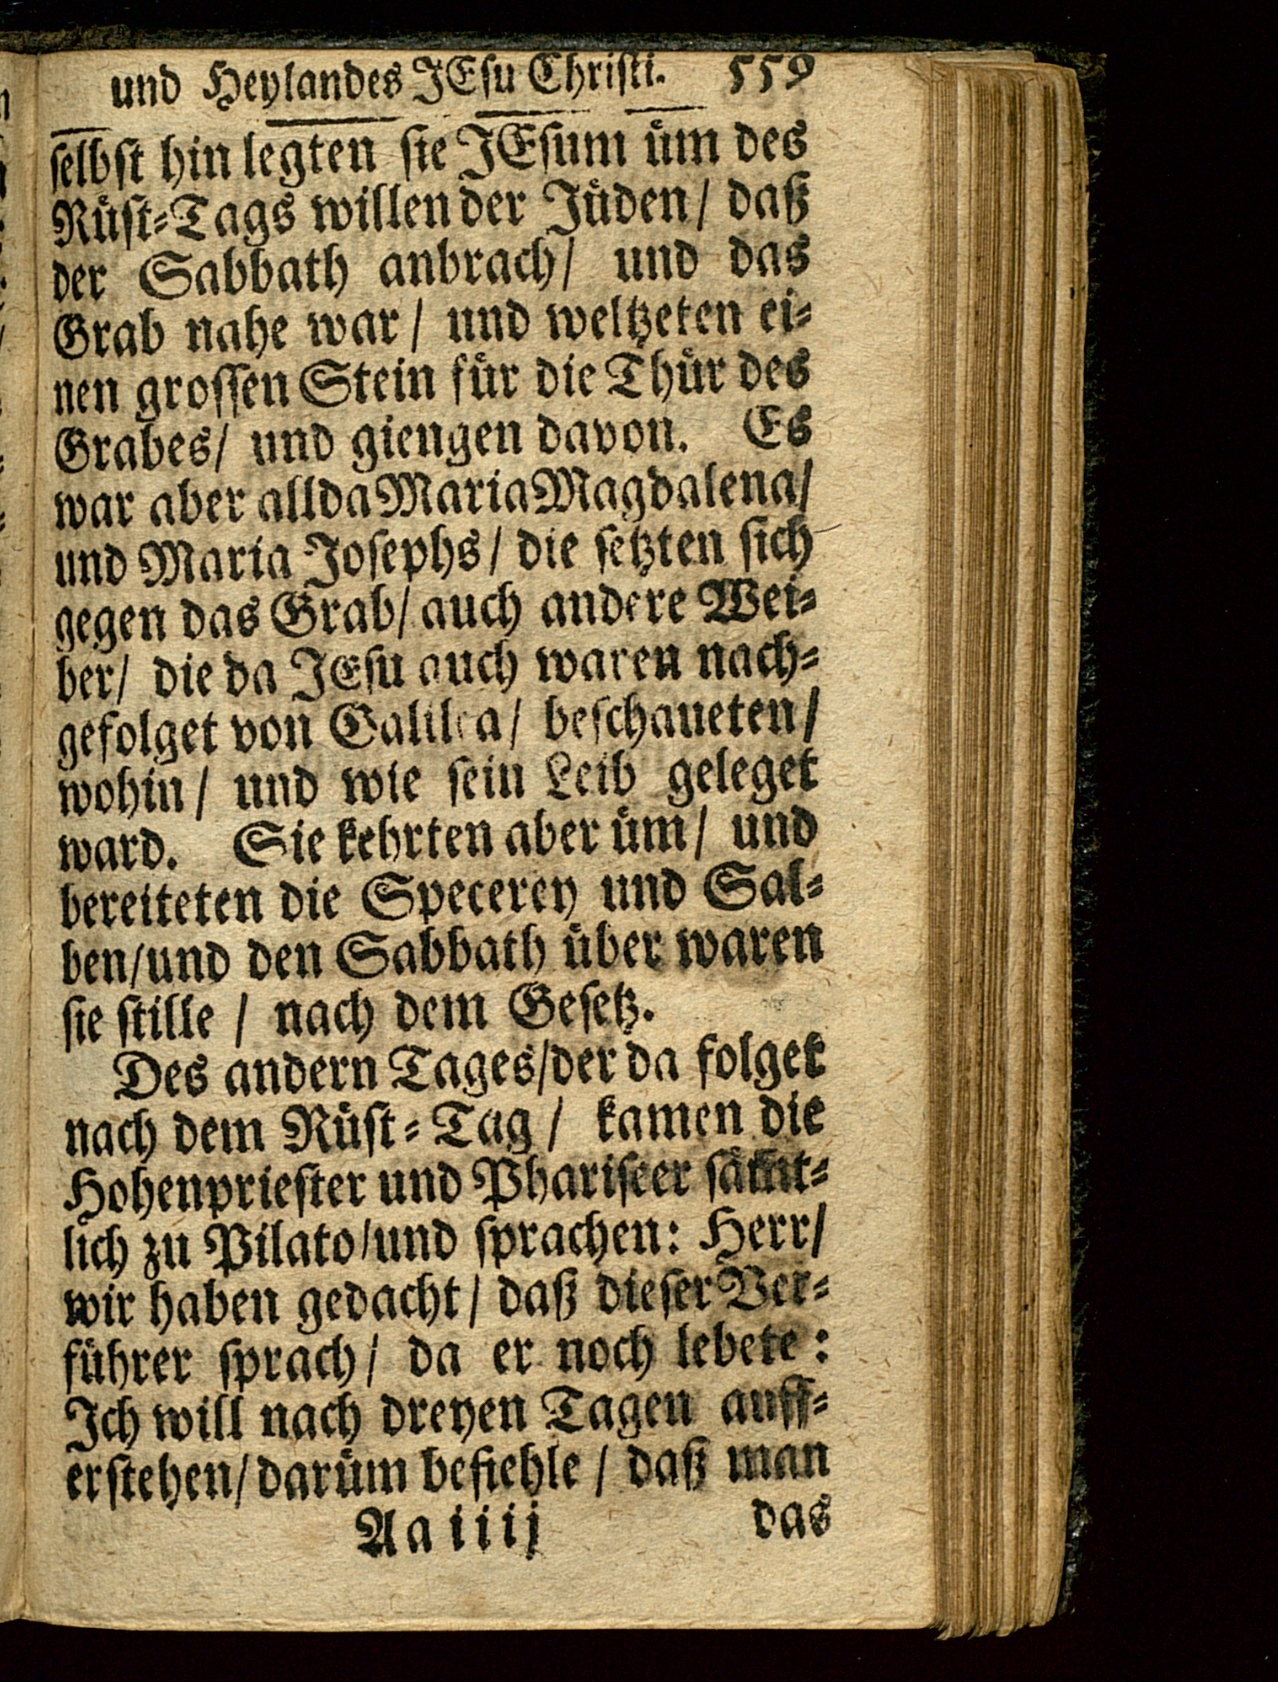 und Heylandes JEsu Christi. 559
selbst hin legten sie JEsum üm des
Rüst-Tags willen der Jüden/ daß
der Sabbath anbrach/ und das
Grab nahe war/ und weltzeten ei-
nen grossen Stein für die Thür des
Grabes/ und giengen davon. Es
war aber allda Maria Magdalena/
und Maria Josephs/ die setzten sich
gegen das Grab/ auch andere Wei-
ber/ die da JEsu auch waren nach-
gefolget von Galilea/ beschaueten/
wohin/ und wie sein Leib geleget
ward. Sie kehrten aber üm/ und
bereiteten die Specerey und Sal-
ben/und den Sabbath über waren
sie stille / nach dem Gesetz.
Des andern Tages/der da folget
nach dem Rüst-Tag/ kamen die
Hohenpriester und Phariseer sämt-
lich zu Pilato/und sprachen: Herr/
wir haben gedacht/ daß dieser Ver-
führer sprach/ da er noch lebete:
Ich will nach dreyen Tagen auff-
erstehen/darüm befiehle / daß man
Aa iiij das